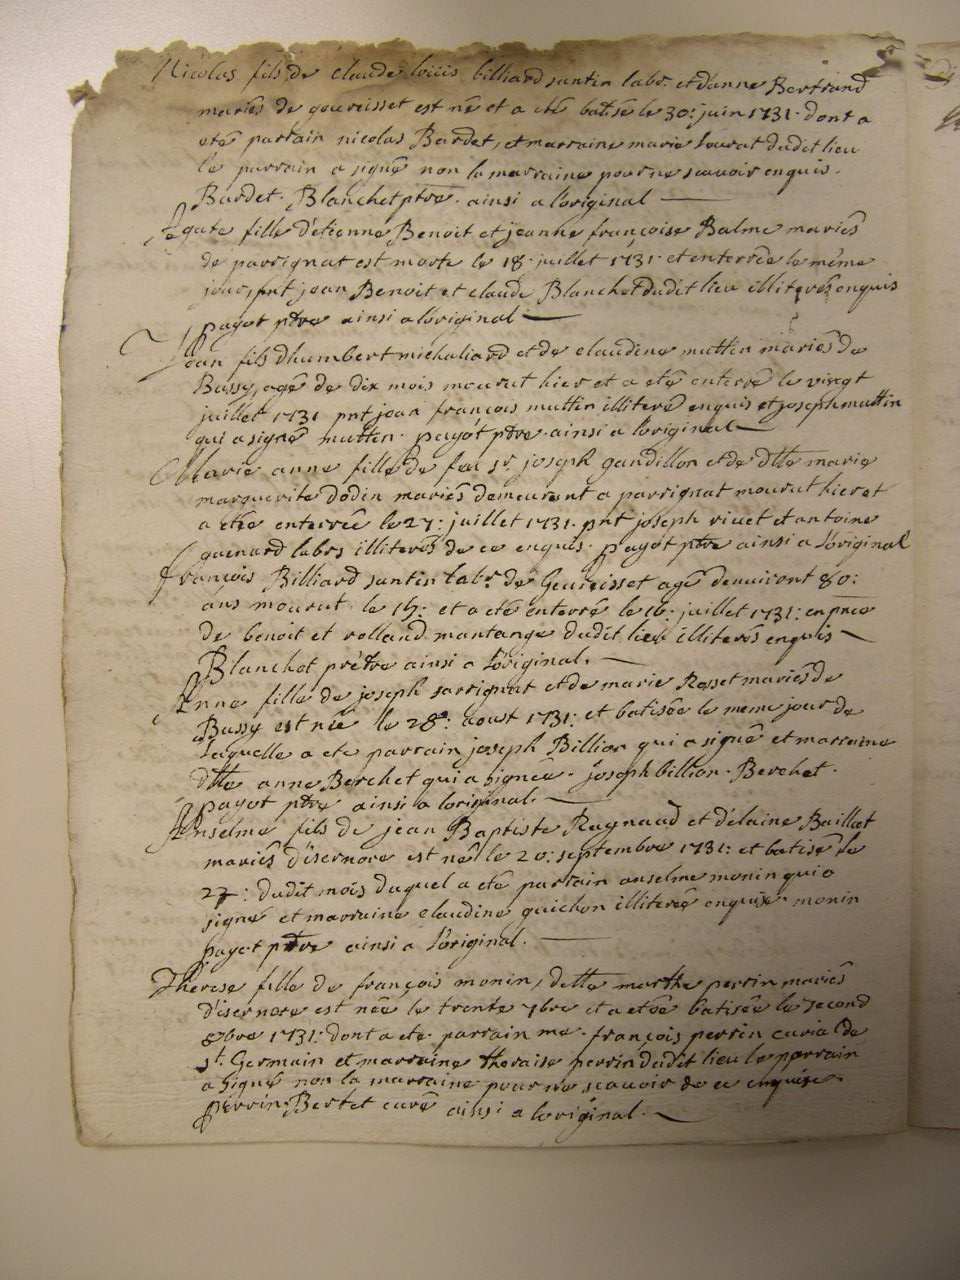 Nicolas fils de claude louis billiard santin labr. et d'anne Bertrand
mariés de goureisset est né et a eté batisé le 30: juin 1731. dont a
eté parrain nicolas Bardet, et marraine marie dudit lieu
le parrain a signé non la marraine pour ne scavoir enquis.
Bardet. Blanchet ptre. ainsi a l'original
Agate fille d'étienne Benoit et jeanne françoise Balme mariés
de parrignat est morte le 18. juillet 1731. et enterrée le même
jour, pnt jean Benoit et claude Blanchet dudit lieu illiterés enquis
payot ptre ainsi a l'original
Jean fils dhumbert michaliard et de claudine muttin mariés de
Bussy, agé de dix mois mourut hier et a eté enterré le vingt
juillet 1731 pnt jean françois muttin illiteré enquis et joseph muttin
qui a signé muttin. payot ptre. ainsi a l'original
Marie anne fille de feu sr. joseph gandillon et de dlle marie
marguerite dodin mariés demeurant a parrignat mourut hier et
a etée enterrée le 27: juillet 1731. pnt joseph rivet et antoine
guinard labrs illiterés de ce enquis. payot ptre ainsi a l'original
françois Billiard santin labr. de Goureisset agé denviront 80:
ans mourut le 15: et a eté enterré le 16. juillet 1731: en pnce
de benoit et rolland mantange dudit lieu illiterés enquis
Blanchet prêtre ainsi a l'original.
Anne fille de joseph sarrignat et de marie Rosset mariés de
Bussy est née le 28e: aoust 1731: et batisée le meme jour de
laquelle a ete parrain joseph Billion qui a signé et marraine
dlle anne Berchet qui a signée. joseph billion. Berchet.
payot ptre ainsi a loriginal.
Anselme fils de jean Baptiste Raynaud et d'élaine Baillat
mariés d'isernore est né le 20: septembre 1731: et batisé le
27: dudit mois duquel a eté parrain anselme monin qui a
signé et marraine claudine guichon illiterée enquise. monin
payot ptre ainsi a l'original.
Therese fille de françois monin, dette marthe perrin mariés
d'isernore est née le trente 7bre et a etée batisée le second
8bre 1731: dont a ete. parrain me. françois perrin curial de
st. Germain et marraine theraise perrin dudit lieu le parrain
a signé non la marraine pour ne scavoir de ce enquise
perrin. Bertet curé ainsi a loriginal.